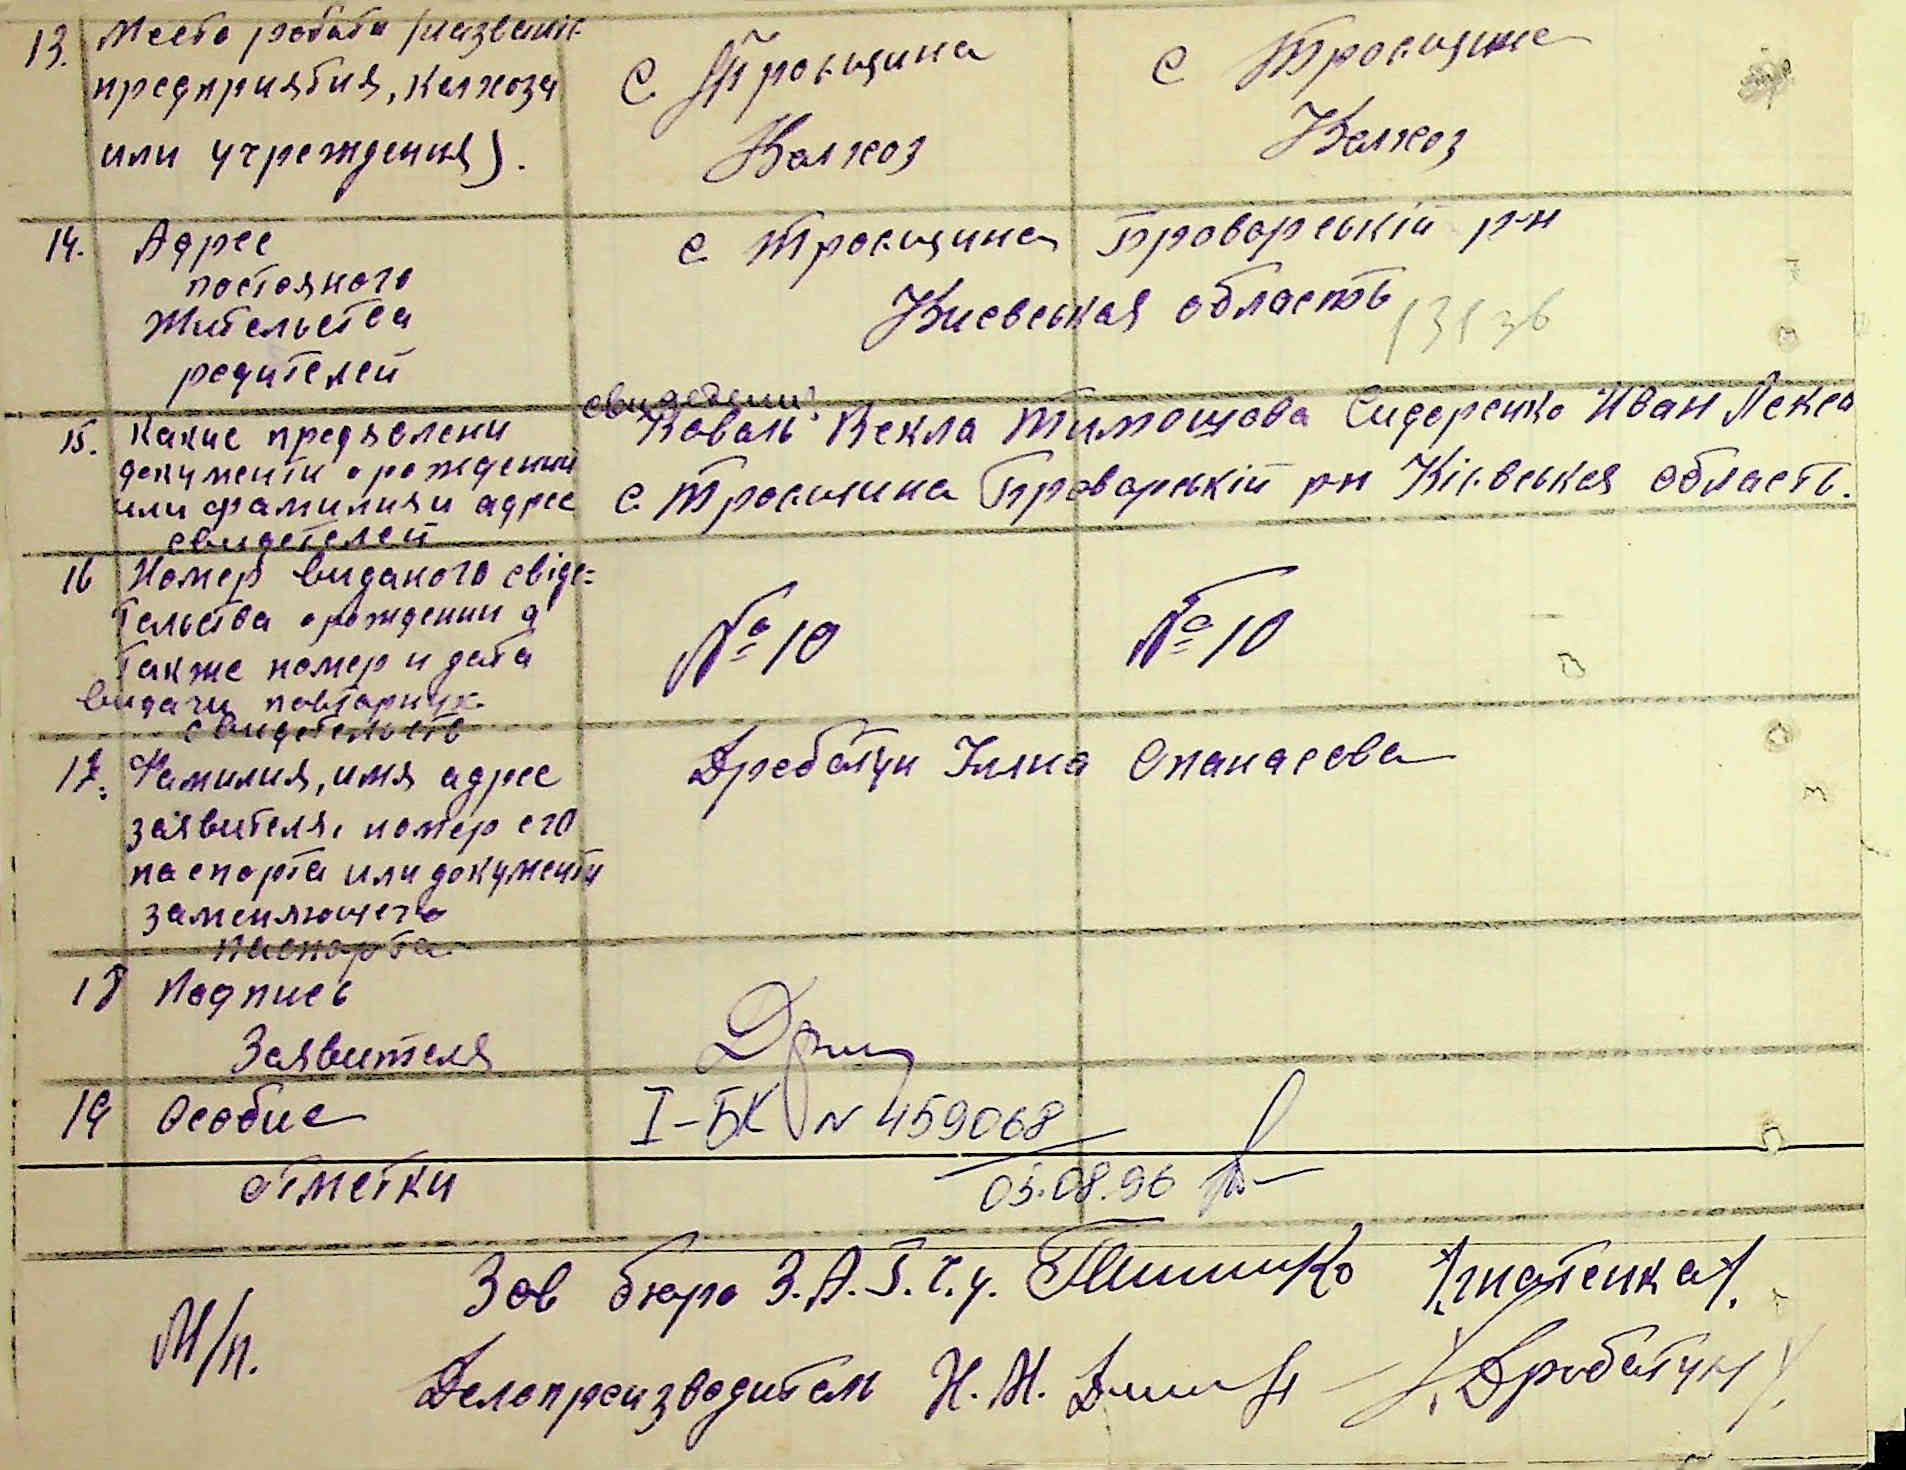 13. Место работи /названи-
предприятия, колхоза
или учреждения).
с. Троєщина
Колхоз
с Троещине
Колхоз
14. Адрес
постояного
Жительства
родителей
с Троещина Броворський р-н
Киевськая область
15. Какие предявлени
документи о рождении
или фамилия и адрес
свидетелей
свидетели:
Коваль Векла Тимошова Сидоренко Иван Лекса
с. Троещина Броворській р-н Кієвськая область.
16 Номер виданого свіде=
тельства о рождении а
также номер и дата
видачи повторних
свидетельств
№ 10
№ 10
17. Фамилия, имя адрес
заявителя, номер его
паспорта или документи
заменяющего
паспорта
Дроботун Іллка Опанасова
18 Подпись
Заявителя
19 Особие
отметки
I-БК N 459068
05.08.96
М/п.
Зав бюро З.А.Г.с.у.
Делопроизводитель Н.М. /Дроботун/.